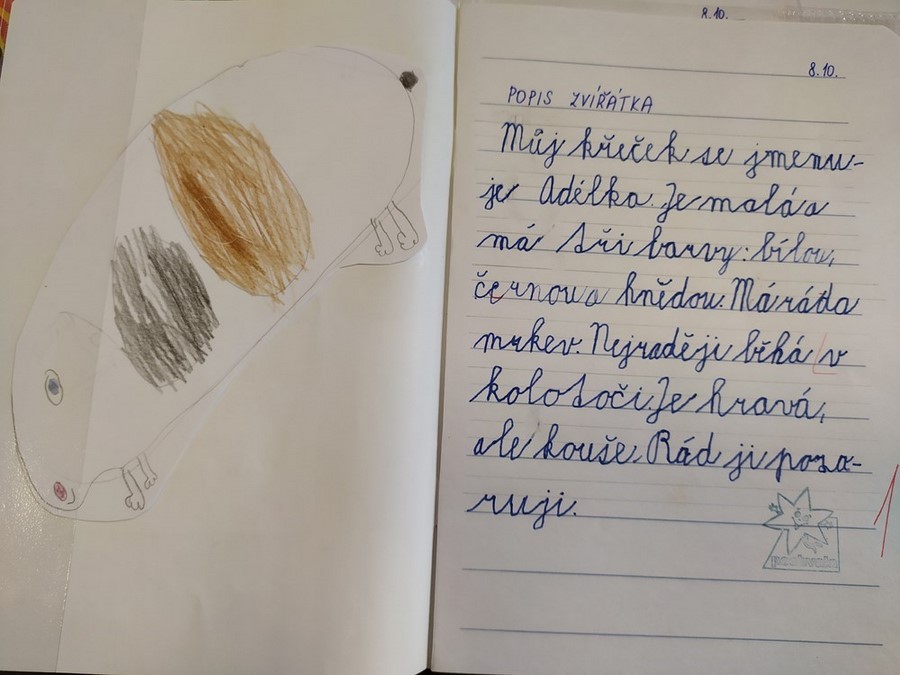 8.10.
8.10.
POPIS ZVÍŘÁTKA
Můj křeček se jmenu-
je Adélka. Je malá a
má tři barvy: bílou,
černou a hnědou. Má ráda
mrkev. Nejraději běhá v
kolotoči. Je hravá,
ale kouše. Rád ji pozo-
ruji.
1
pochvala